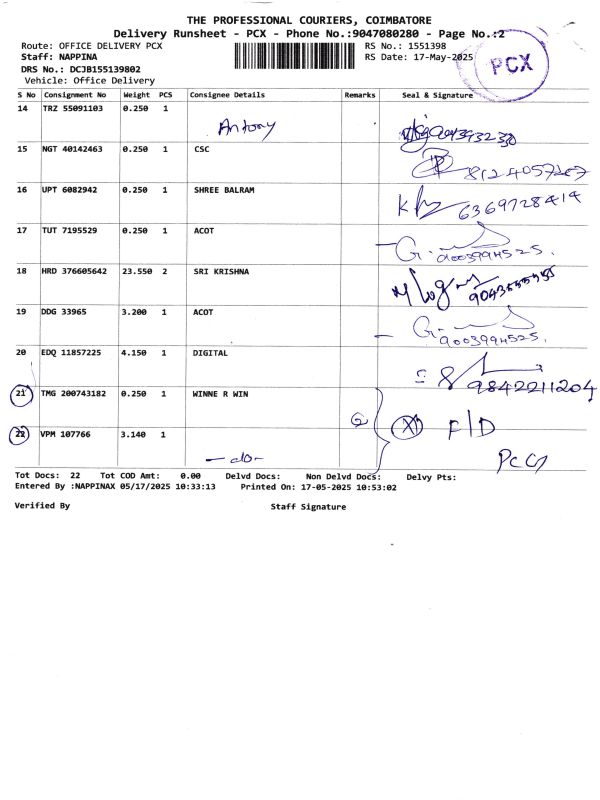 THE PROFESSIONAL COURIERS, COIMBATORE
Delivery Runsheet - PCX - Phone No.:9047080280 - Page No.:2
Route: OFFICE DELIVERY PCX RS No.: 1551398
Staff: NAPPINA RS Date: 17-May-2025
DRS No.: DCJB155139802
Vehicle: Office Delivery
PCX
S No Consignment No Weight PCS Consignee Details Remarks Seal & Signature
14 TRZ 55091103 0.250 1
Antony
15 NGT 40142463 0.250 1 CSC
8124057267
16 UPT 6082942 0.250 1 SHREE BALRAM
6369728414
17 TUT 7195529 0.250 1 ACOT
9003994525.
18 HRD 376605642 23.550 2 SRI KRISHNA
19 DDG 33965 3.200 1 ACOT
9003994525.
20 EDQ 11857225 4.150 1 DIGITAL
9842211204
21 TMG 200743182 0.250 1 WINNE R WIN
F/D
22 VPM 107766 3.140 1
-do-
Tot Docs: 22 Tot COD Amt: 0.00 Delvd Docs: Non Delvd Docs: Delvy Pts:
Entered By :NAPPINAX 05/17/2025 10:33:13 Printed On: 17-05-2025 10:53:02
Verified By Staff Signature